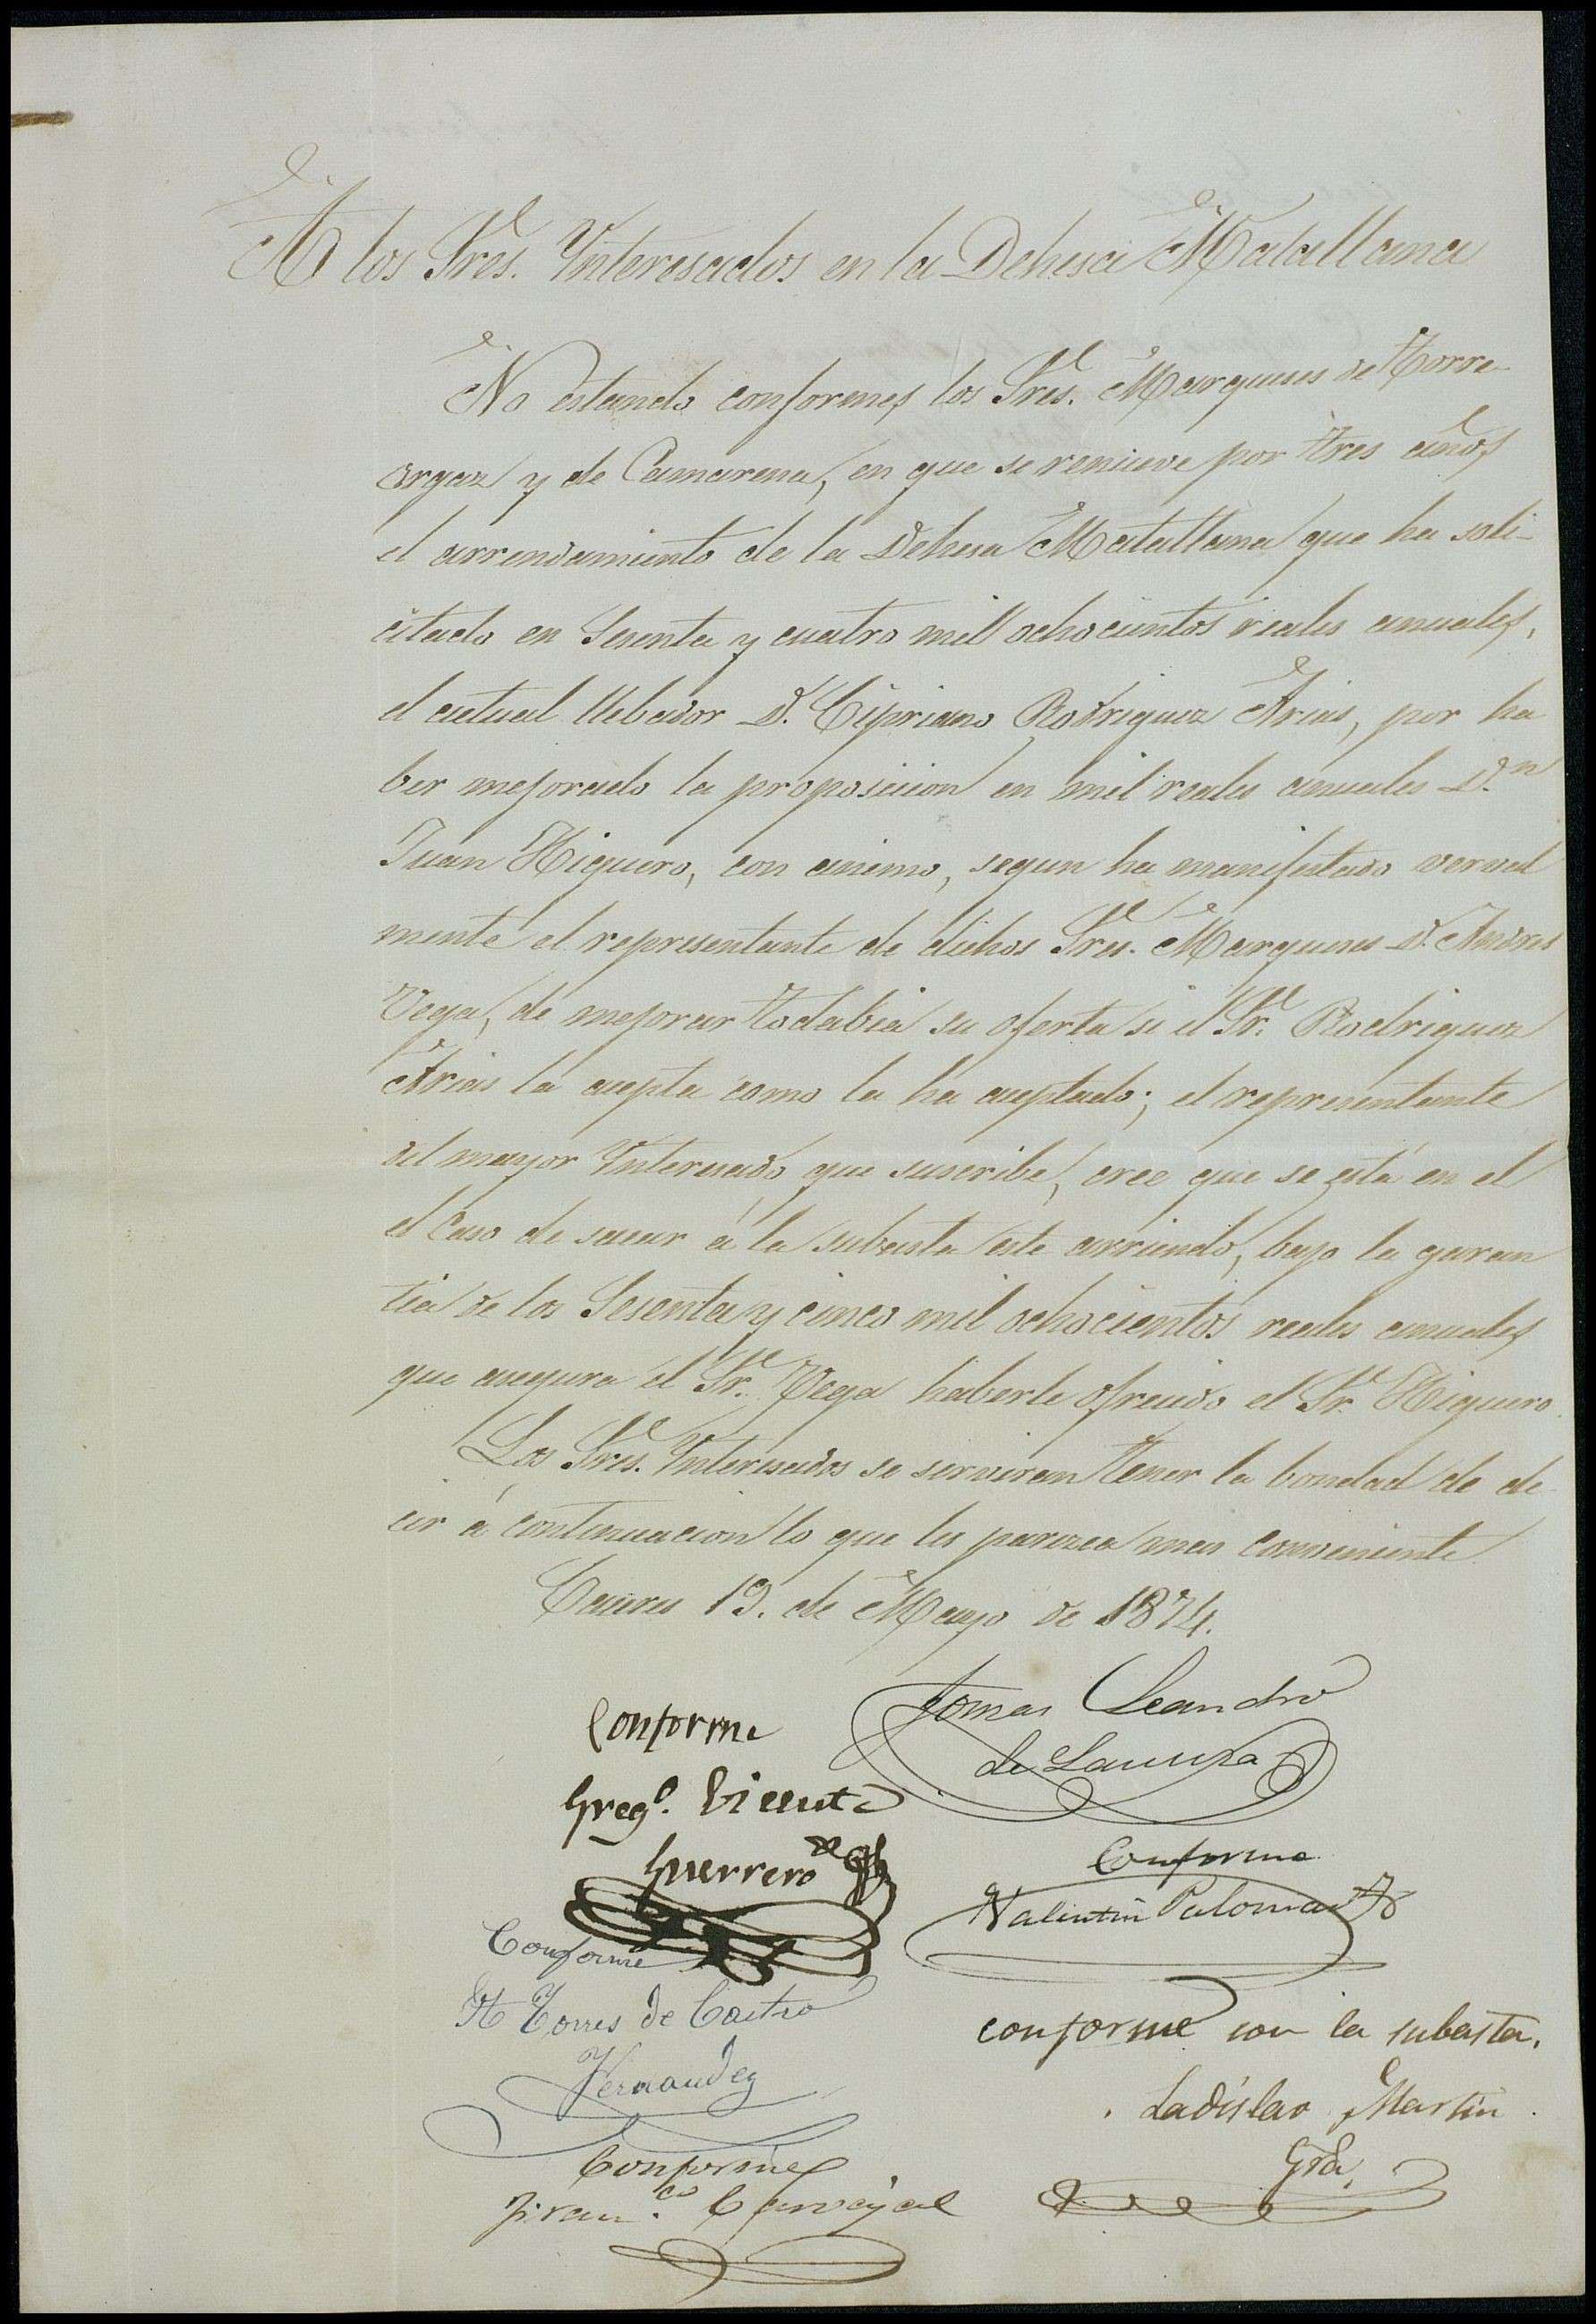 A los Sres. Interesados en la Dehesa Matallana
No estando conformes los Sres. Marqueses de Torre
orgaz y de Camarena, en que se renueve por tres años
el arrendamiento de la Dehesa Matallana que ha soli-
citado en Sesenta y cuatro mil ochocientos reales anuales,
el actual llebador D. Cipriano Rodriguez Arias, por ha
ber mejorado la proposicion en mil reales anuales D.n
Juan Higuero, con animo, segun ha manifestado verval
mente el representante de dichos Sres. Marqueses D. Andres
Vega, de mejorar todabia su oferta si el Sr. Rodriguez
Arias la acepta como la ha aceptado; el representante
del mayor Interesado que suscribe, cree que se está en el
el Caso de sacar á la subasta este arriendo, bajo la garan
tia de los Sesenta y cinco mil ochocientos reales anuales
que asegura el Sr. Vega haberle ofrecido el Sr. Higuero.
Los Sres. Interesados se serviran tener la bondad de de
cir á continuacion lo que les parezca mas conveniente.
Caceres 19. de Mayo de 1874.
Tomas Leandro
de
Conforme
Greg.o Vicente
Guerrero
Conforme
Valentin Palomar
Conforme
Torres de Castro
Hernandez
conforme con la subasta.
Ladislao Martin
Grda.
Conforme
Fran.co Carvajal